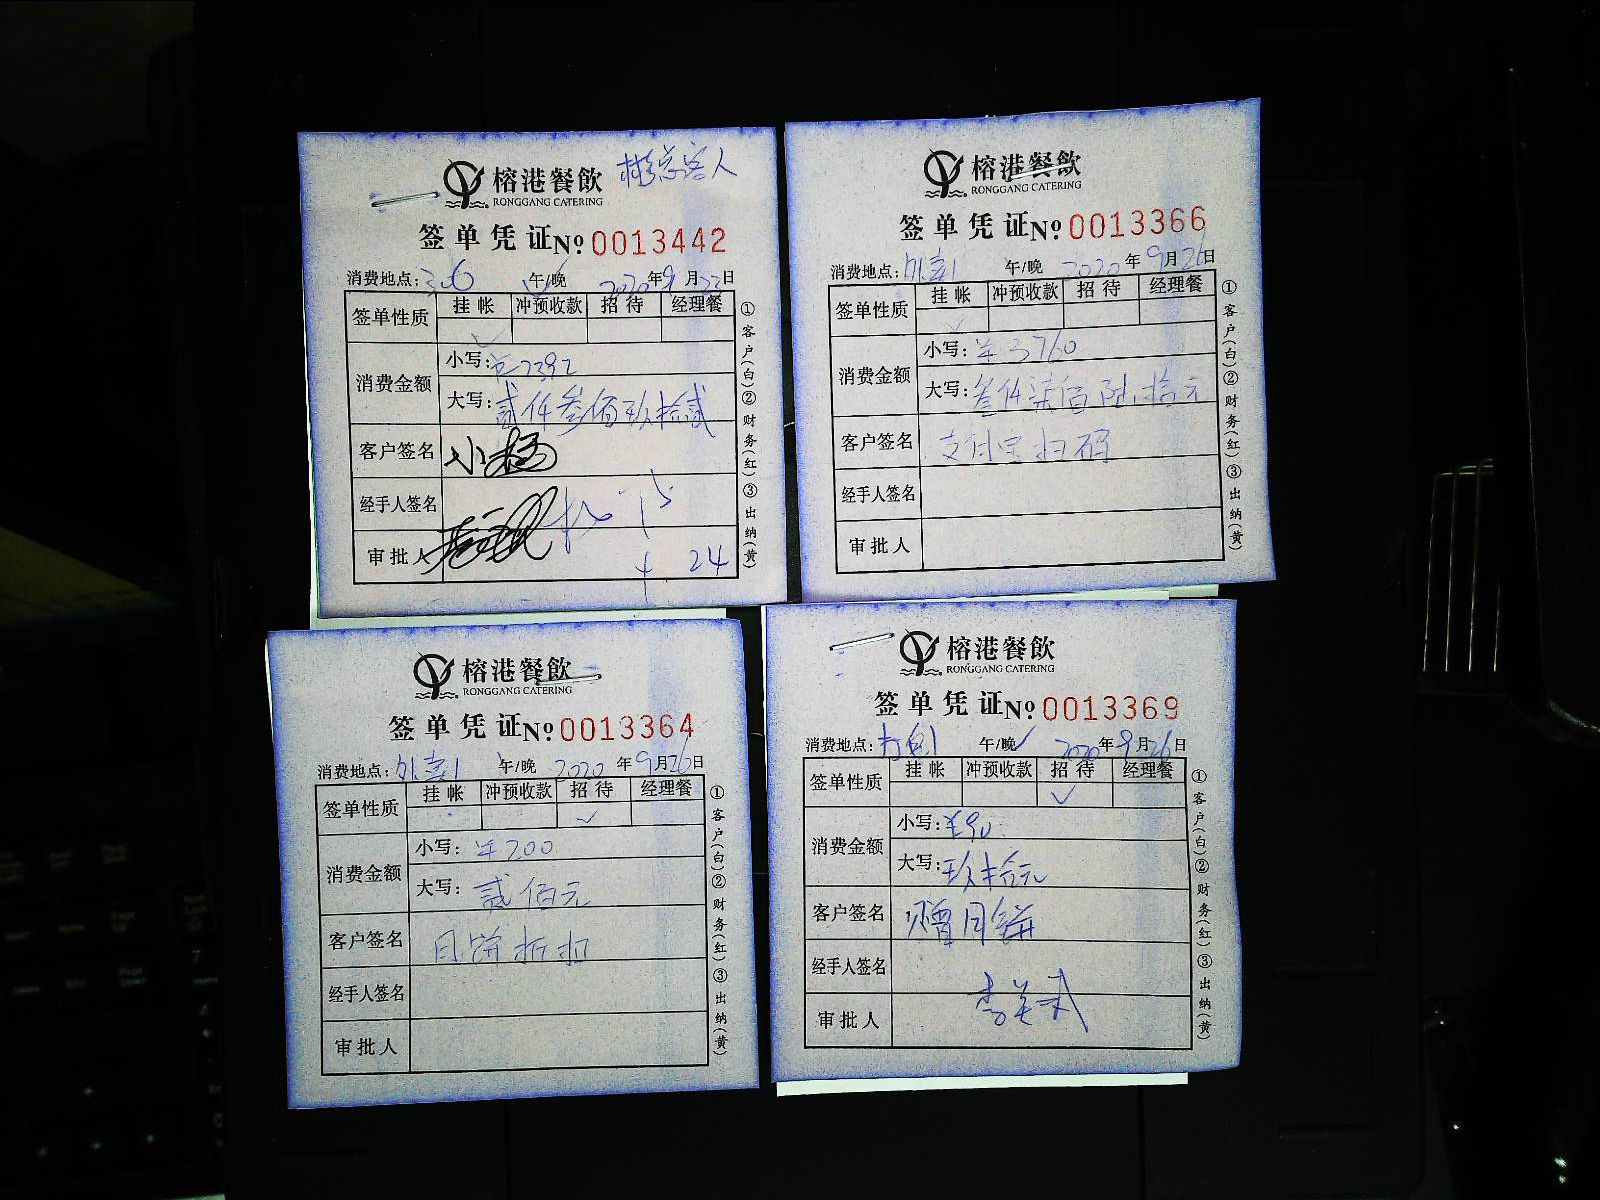 榕港餐飲 彬总客人
RONGGANG CATERING
签单凭证№0013442
消费地点:306 午/晚 2020年9月22日
签单性质 挂帐 冲预收款 招待 经理餐
消费金额
小写:¥2392
大写:贰仟叁佰玖拾贰
客户签名 小杨
经手人签名
审批人
24
①客户(白)②财务(红)③出纳(黄)
榕港餐飲
RONGGANG CATERING
签单凭证№0013366
消费地点:外卖1 午/晚 2020年9月26日
签单性质 挂帐 冲预收款 招待 经理餐
消费金额
小写:¥3760
大写:叁仟柒佰陆拾元
客户签名 支付宝扫码
经手人签名
审批人
①客户(白)②财务(红)③出纳(黄)
榕港餐飲
RONGGANG CATERING
签单凭证№0013364
消费地点:外卖1 午/晚 2020年9月26日
签单性质 挂帐 冲预收款 招待 经理餐
消费金额
小写:¥200
大写:贰佰元
客户签名 月饼折扣
经手人签名
审批人
①客户(白)②财务(红)③出纳(黄)
榕港餐飲
RONGGANG CATERING
签单凭证№0013369
消费地点:打包1 午/晚✓ 2020年9月26日
签单性质 挂帐 冲预收款 招待 经理餐
✓
消费金额
小写:¥90
大写:玖拾元
客户签名 赠月饼
经手人签名
审批人
①客户(白)②财务(红)③出纳(黄)